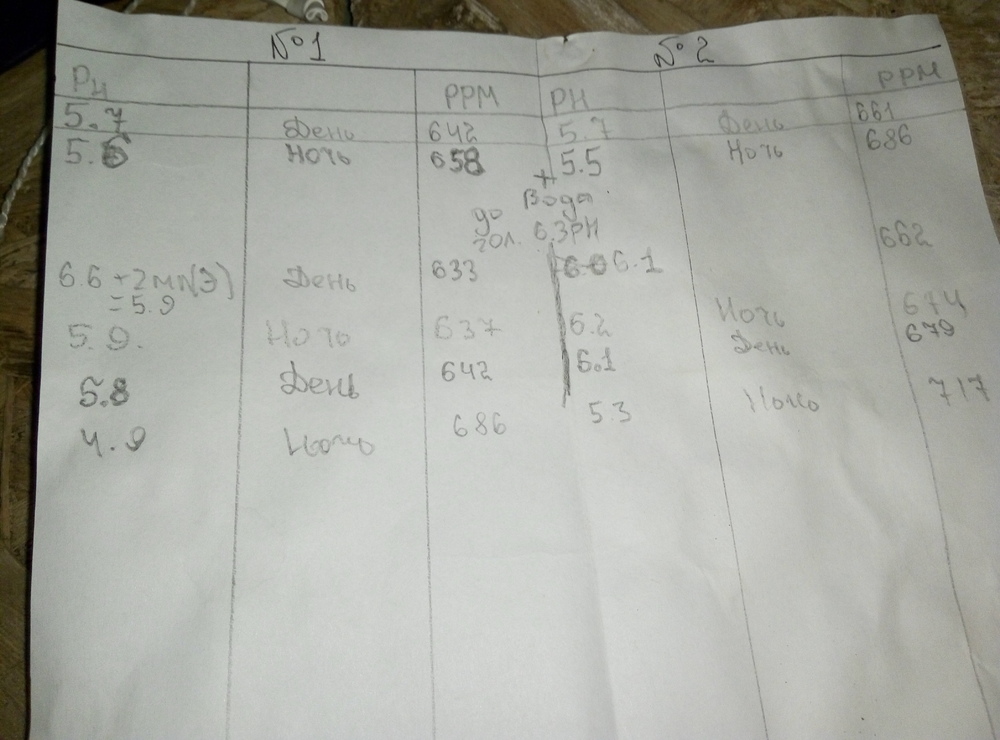 №1 №2
PH PPM PH PPM
5.7 День 642 5.7 День 661
5.6 Ночь 658 5.5 Ночь 686
+ Вода
до
гол. 6.3PH 662
6.6 +2мл(Э) День 633 6.1
=5.9 Ночь 674
5.9. Ночь 637 6.2 День 679
5.8 День 642 6.1
4.9 Ночь 686 5.3 Ночь 717